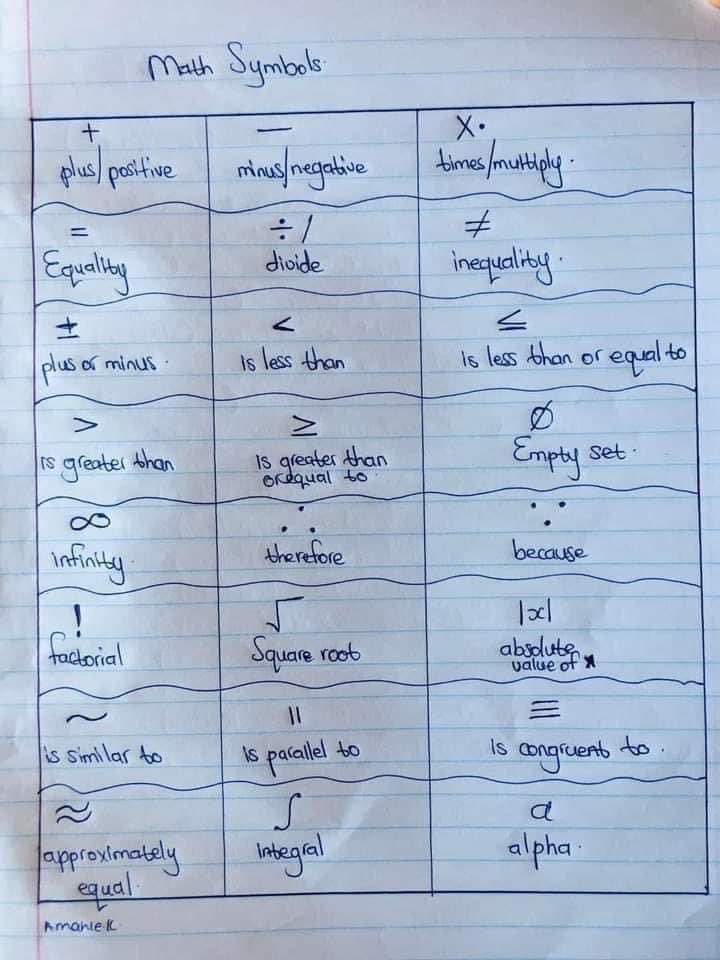 Math Symbols.
+ — X·
plus/positive minus/negative times/multiply.
= ÷ / ≠
Equality divide inequality.
± < ≤
plus or minus. Is less than Is less than or equal to
> ≥ ∅
is greater than Is greater than Empty set.
or equal to.
∞ ∴ ∵
infinity. therefore because
! √ |x|
factorial Square root absolute
value of x
~ || ≡
is similar to Is parallel to Is congruent to.
≈ ∫ α
approximately Integral alpha.
equal.